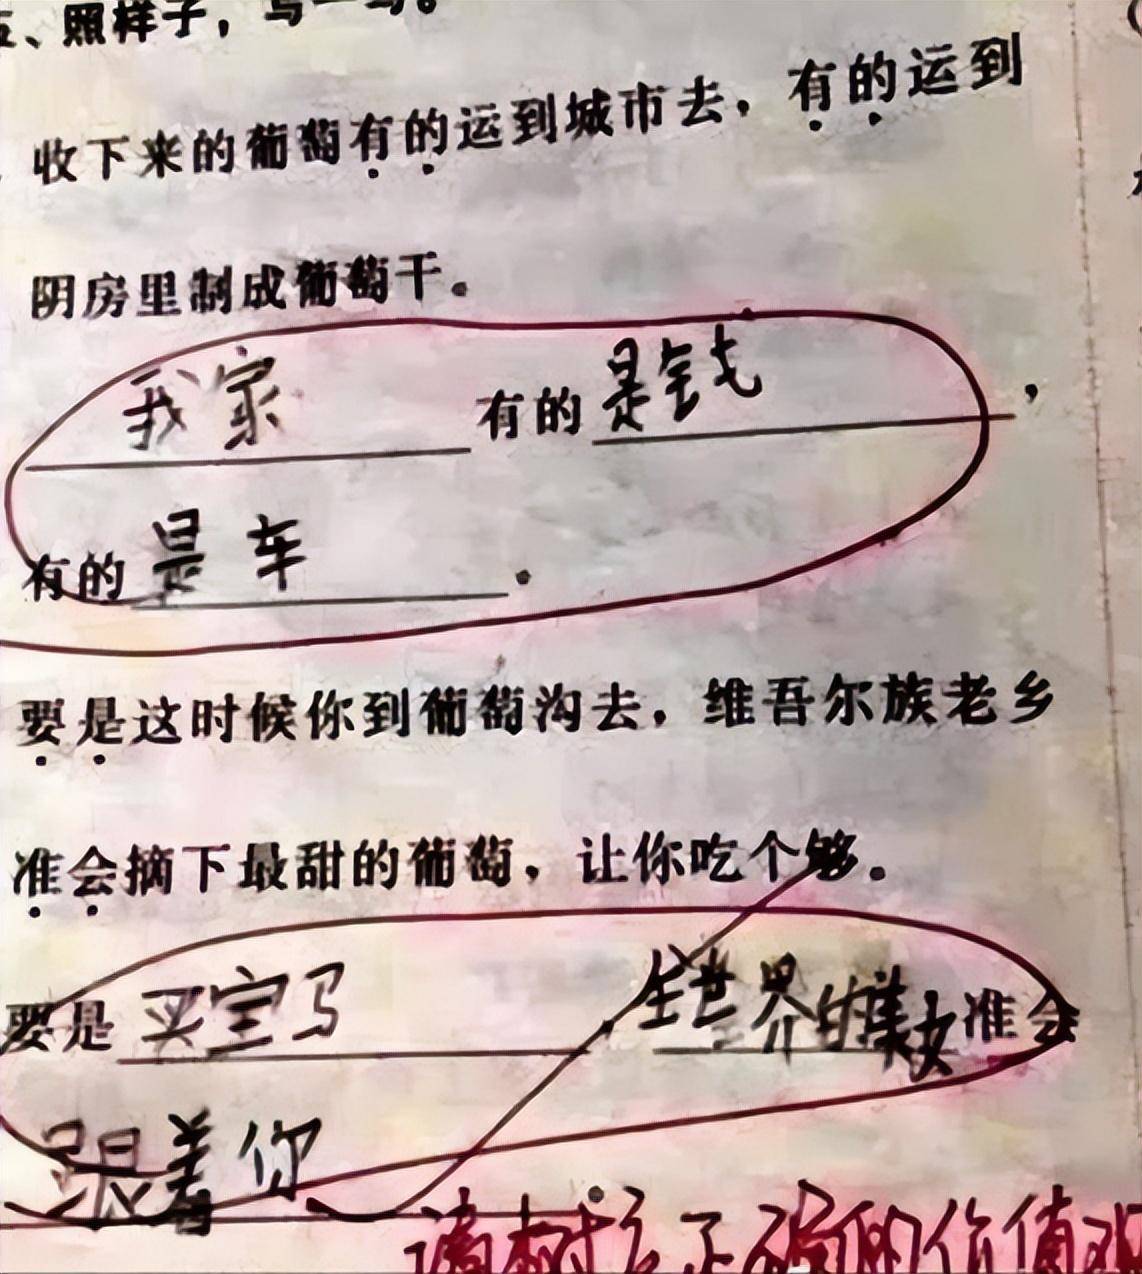 五、照样子，写一写。
收下来的葡萄有的运到城市去，有的运到
阴房里制成葡萄干。
我家有的是钱，
有的是车.
要是这时候你到葡萄沟去，维吾尔族老乡
准会摘下最甜的葡萄，让你吃个够。
要是买宝马，全世界的美女准会
跟着你
请树立正确的价值观